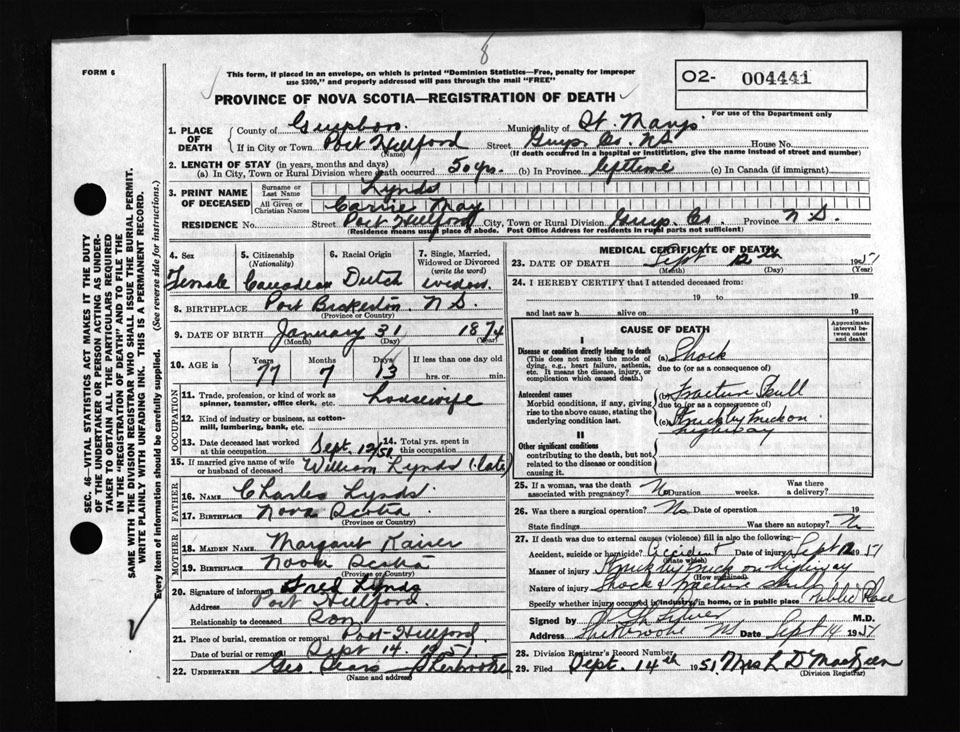 8
FORM 6
This form, if placed in an envelope, on which is printed "Dominion Statistics—Free, penalty for improper
use $300," and properly addressed will pass through the mail "FREE"
O2- 004441
For use of the Department only
PROVINCE OF NOVA SCOTIA—REGISTRATION OF DEATH
1. PLACE OF DEATH
County of Guysboro. Municipality of St. Marys.
If in City or Town Port Hillford Street Guys. Co. N.S. House No.
(Name) (If death occurred in a hospital or institution, give the name instead of street and number)
2. LENGTH OF STAY (in years, months and days)
(a) In City, Town or Rural Division where death occurred 50 yrs. (b) In Province lifetime (c) In Canada (if immigrant)
3. PRINT NAME OF DECEASED
Surname or Last Name Lynds
All Given or Christian Names Carrie May
RESIDENCE No. Street Port Hillford City, Town or Rural Division Guys. Co. Province N S.
(Residence means usual place of abode. Post Office Address for residents in rural parts not sufficient)
4. Sex Female
5. Citizenship (Nationality) Canadian
6. Racial Origin Dutch
7. Single, Married, Widowed or Divorced (write the word) widow.
8. BIRTHPLACE Port Bickerton N S.
(Province or Country)
9. DATE OF BIRTH January 31 1874
(Month) (Day) (Year)
10. AGE in Years 77 Months 7 Days 13 If less than one day old hrs. or min.
OCCUPATION
11. Trade, profession, or kind of work as
spinner, teamster, office clerk, etc. housewife
12. Kind of industry or business, as cotton-
mill, lumbering, bank, etc.
13. Date deceased last worked
at this occupation Sept. 12/51
14. Total yrs. spent in
this occupation
15. If married give name of wife
or husband of deceased William Lynds (late)
FATHER
16. NAME Charles Lynds.
17. BIRTHPLACE Nova Scotia
(Province or Country)
MOTHER
18. MAIDEN NAME Margaret Kaiser
19. BIRTHPLACE Nova Scotia
(Province or Country)
20. Signature of informant Fred Lynds
Address Port Hillford.
Relationship to deceased Son.
21. Place of burial, cremation or removal Port-Hillford.
Date of burial or removal Sept 14. 1951
22. UNDERTAKER Geo. Sherbrooke
(Name and address)
MEDICAL CERTIFICATE OF DEATH
23. DATE OF DEATH Sept 12th 1951
(Month) (Day) (Year)
24. I HEREBY CERTIFY that I attended deceased from:
19 to 19
and last saw h alive on 19
CAUSE OF DEATH
Approximate interval between onset and death
I
Disease or condition directly leading to death
(This does not mean the mode of
dying, e.g., heart failure, asthenia,
etc. It means the disease, injury, or
complication which caused death.)
(a) Shock
due to (or as a consequence of)
Antecedent causes
Morbid conditions, if any, giving
rise to the above cause, stating the
underlying condition last.
(b) Fracture Skull
due to (or as a consequence of)
(c) Struck by truck on
highway
II
Other significant conditions
contributing to the death, but not
related to the disease or condition
causing it.
25. If a woman, was the death
associated with pregnancy? No Duration weeks. Was there
a delivery?
26. Was there a surgical operation? No Date of operation 19
State findings Was there an autopsy? No
27. If death was due to external causes (violence) fill in also the following:—
Accident, suicide or homicide? Accident Date of injury Sept 12 1951
(State which)
Manner of injury Struck by truck on highway
(How sustained)
Shock & fracture skull
Specify whether injury occurred in industry, in home, or in public place Public Place
Signed by M.D.
Address Sherbrooke NS Date Sept 14 1951
28. Division Registrar's Record Number
29. Filed Sept. 14th 1951 Mrs L D MacKeen
(Division Registrar)
SEC. 46- VITAL STATISTICS ACT MAKES IT THE DUTY
OF THE UNDERTAKER OR PERSON ACTING AS UNDER-
TAKER TO OBTAIN ALL THE PARTICULARS REQUIRED
IN THE "REGISTRATION OF DEATH" AND TO FILE THE
SAME WITH THE DIVISION REGISTRAR WHO SHALL ISSUE THE BURIAL PERMIT.
WRITE PLAINLY WITH UNFADING INK. THIS IS A PERMANENT RECORD.
Every item of information should be carefully supplied. (See reverse side for instructions.)